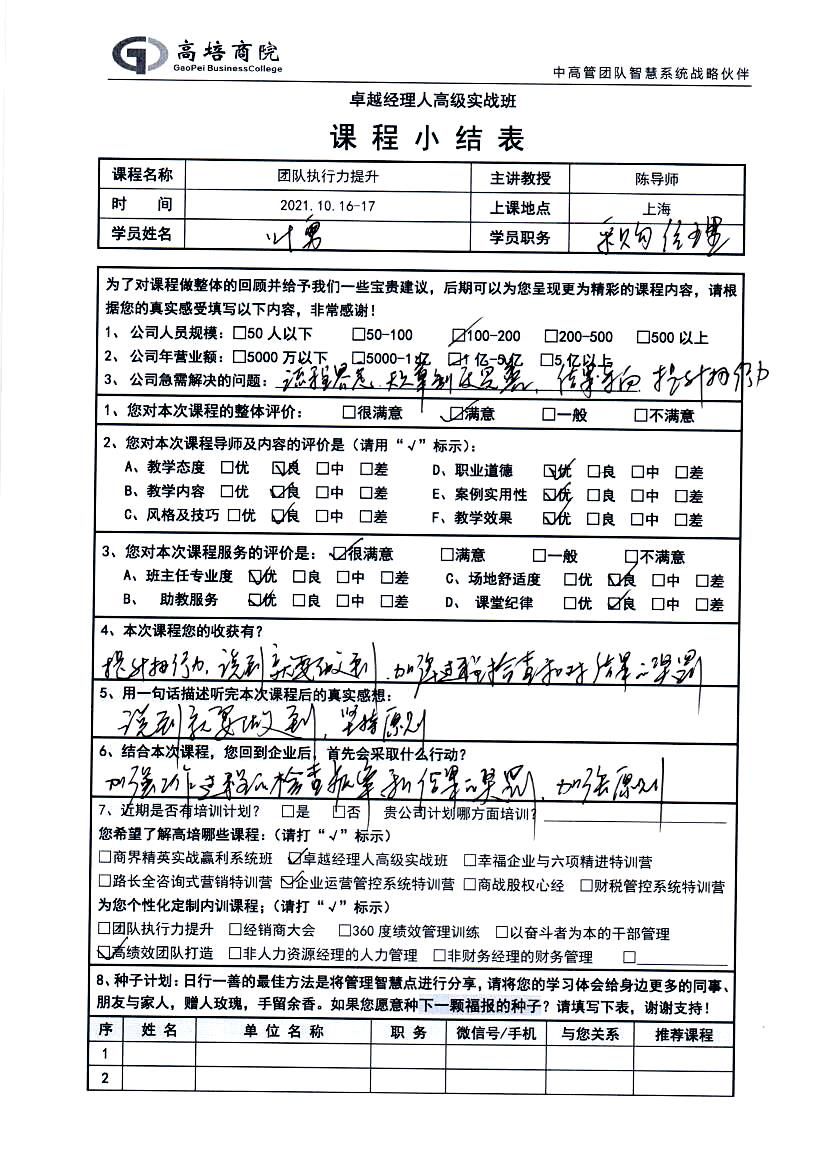 高培商院
GaoPei BusinessCollege
中高管团队智慧系统战略伙伴
卓越经理人高级实战班
课程小结表
课程名称 团队执行力提升 主讲教授 陈导师
时 间 2021.10.16-17 上课地点 上海
学员姓名 叶勇 学员职务 采购经理
为了对课程做整体的回顾并给予我们一些宝贵建议，后期可以为您呈现更为精彩的课程内容，请根
据您的真实感受填写以下内容，非常感谢！
1、 公司人员规模：□50 人以下 □50-100 ☑100-200 □200-500 □500 以上
2、 公司年营业额：□5000 万以下 □5000-1 亿 ☑1 亿-5 亿 □5 亿以上
3、 公司急需解决的问题： 制度完善，结果导向 提升执行力
1、您对本次课程的整体评价： □很满意 ☑满意 □一般 □不满意
2、您对本次课程导师及内容的评价是（请用“√”标示）：
A、教学态度 □优 ☑良 □中 □差 D、职业道德 ☑优 □良 □中 □差
B、教学内容 □优 ☑良 □中 □差 E、案例实用性 ☑优 □良 □中 □差
C、风格及技巧 □优 ☑良 □中 □差 F、教学效果 ☑优 □良 □中 □差
3、您对本次课程服务的评价是： ☑很满意 □满意 □一般 □不满意
A、班主任专业度 ☑优 □良 □中 □差 C、场地舒适度 □优 ☑良 □中 □差
B、 助教服务 ☑优 □良 □中 □差 D、 课堂纪律 □优 ☑良 □中 □差
4、本次课程您的收获有？
提升执行力，说到就要做到，加强过程检查和对结果的奖罚
5、用一句话描述听完本次课程后的真实感想：
说到就要做到，坚持原则
6、结合本次课程，您回到企业后，首先会采取什么行动？
加强工作过程的检查 和结果的奖罚，加强原则
7、近期是否有培训计划？ □是 □否 贵公司计划哪方面培训？
您希望了解高培哪些课程：（请打“√”标示）
□商界精英实战赢利系统班 ☑卓越经理人高级实战班 □幸福企业与六项精进特训营
□路长全咨询式营销特训营 ☑企业运营管控系统特训营 □商战股权心经 □财税管控系统特训营
为您个性化定制内训课程；（请打“√”标示）
□团队执行力提升 □经销商大会 □360 度绩效管理训练 □以奋斗者为本的干部管理
☑高绩效团队打造 □非人力资源经理的人力管理 □非财务经理的财务管理 □
8、种子计划：日行一善的最佳方法是将管理智慧点进行分享，请将您的学习体会给身边更多的同事、
朋友与家人，赠人玫瑰，手留余香。如果您愿意种下一颗福报的种子？请填写下表，谢谢支持！
序 姓 名 单 位 名 称 职 务 微信号/手机 与您关系 推荐课程
1
2